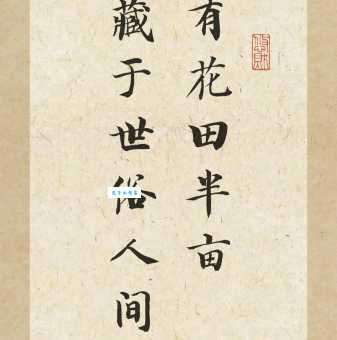 有花田半亩
藏于世俗人间